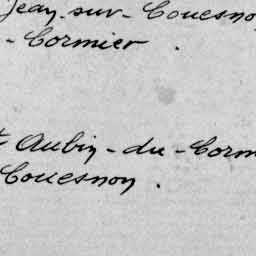 Jean-sur-Couesno
- Cormier.
t Aubin-du-Corm
Couesnon.